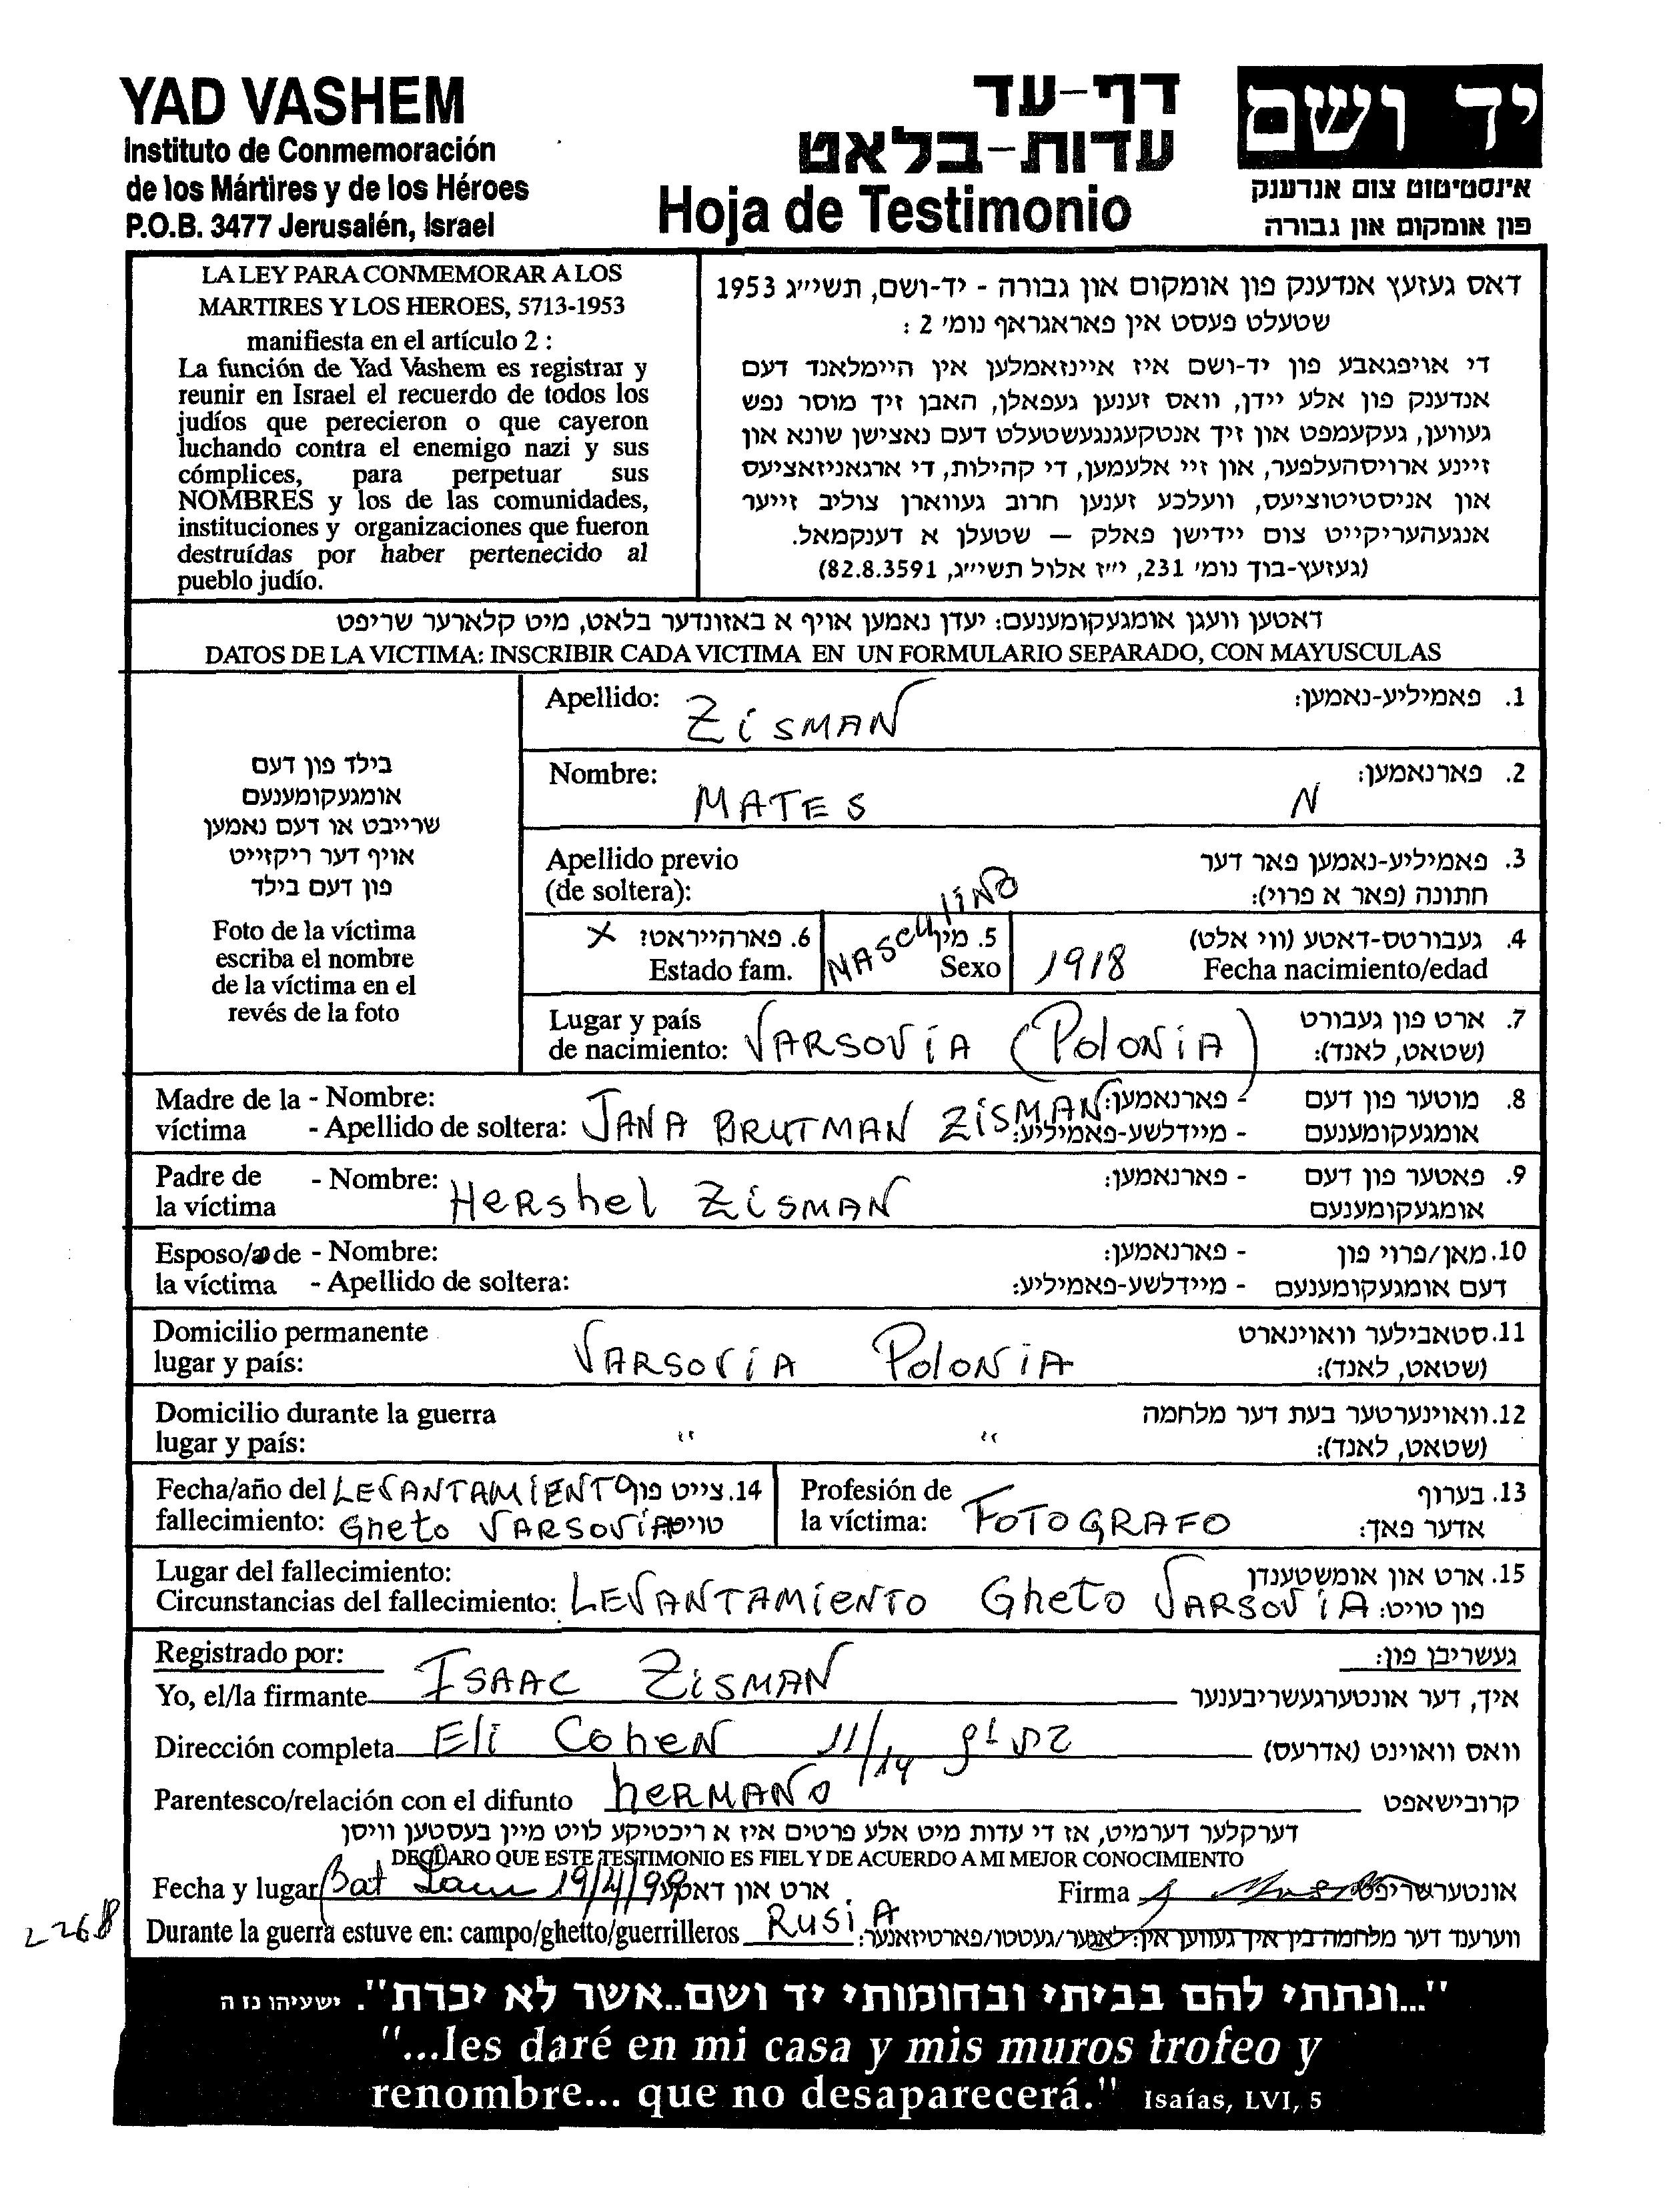 YAD VASHEM
Instituto de Conmemoración
de los Mártires y de los Héroes
P.O.B. 3477 Jerusalén, Israel
דף-עד
עדות-בלאט
Hoja de Testimonio
יד ושם
אינסטיטוט צום אנדענק
פון אומקום און גבורה
LA LEY PARA CONMEMORAR A LOS
MARTIRES Y LOS HEROES, 5713-1953
manifiesta en el artículo 2 :
La función de Yad Vashem es registrar y
reunir en Israel el recuerdo de todos los
judíos que perecieron o que cayeron
luchando contra el enemigo nazi y sus
cómplices, para perpetuar sus
NOMBRES y los de las comunidades,
instituciones y organizaciones que fueron
destruídas por haber pertenecido al
pueblo judío.
דאס געזעץ אנדענק פון אומקום און גבורה - יד-ושם, תשי״ג 1953
שטעלט פעסט אין פאראגראף נומ׳ 2 :
די אויפגאבע פון יד-ושם איז איינזאמלען אין היימלאנד דעם
אנדענק פון אלע יידן, וואס זענען געפאלן, האבן זיך מוסר נפש
געווען, געקעמפט און זיך אנטקעגנגעשטעלט דעם נאצישן שונא און
זיינע ארויסהעלפער, און זיי אלעמען, די קהילות, די ארגאניזאציעס
און אניסטיטוציעס, וועלכע זענען חרוב געווארן צוליב זייער
אנגעהעריקייט צום יידישן פאלק — שטעלן א דענקמאל.
(געזעץ-בוך נומ׳ 231, י״ז אלול תשי״ג, 82.8.3591)
דאטען וועגן אומגעקומענעם: יעדן נאמען אויף א באזונדער בלאט, מיט קלארער שריפט
DATOS DE LA VICTIMA: INSCRIBIR CADA VICTIMA EN UN FORMULARIO SEPARADO, CON MAYUSCULAS
בילד פון דעם
אומגעקומענעם
שרייבט או דעם נאמען
אויף דער ריקזייט
פון דעם בילד
Foto de la víctima
escriba el nombre
de la víctima en el
revés de la foto
Apellido: ZiSMAN 1. פאמיליע-נאמען:
Nombre: MATES N 2. פארנאמען:
Apellido previo 3. פאמיליע-נאמען פאר דער
(de soltera): חתונה (פאר א פרוי):
6. פארהייראט? X 5. מין MASCULINO 4. געבורטס-דאטע (ווי אלט)
Estado fam. Sexo 1918 Fecha nacimiento/edad
Lugar y país 7. ארט פון געבורט
de nacimiento: VARSOViA (PolONiA) (שטאט, לאנד):
Madre de la - Nombre: - פארנאמען: 8. מוטער פון דעם
víctima - Apellido de soltera: JANA BRUTMAN ZiSMAN - מיידלשע-פאמיליע: אומגעקומענעם
Padre de - Nombre: HeRshel ZiSMAN - פארנאמען: 9. פאטער פון דעם
la víctima אומגעקומענעם
Esposo/a de - Nombre: - פארנאמען: 10. מאן/פרוי פון
la víctima - Apellido de soltera: - מיידלשע-פאמיליע: דעם אומגעקומענעם
Domicilio permanente 11. סטאבילער וואוינארט
lugar y país: VARSOViA PolONiA (שטאט, לאנד):
Domicilio durante la guerra 12. וואוינערטער בעת דער מלחמה
lugar y país: " " (שטאט, לאנד):
Fecha/año del LEVANTAMiENTO 14. צייט פון
fallecimiento: Gheto VARSOViA טויט:
Profesión de 13. בערוף
la víctima: FOTOGRAFO אדער פאך:
Lugar del fallecimiento: 15. ארט און אומשטענדן
Circunstancias del fallecimiento: LEVANTAMiENTO Gheto VARSOViA פון טויט:
Registrado por: געשריבן פון:
Yo, el/la firmante ISAAC ZiSMAN איך, דער אונטערגעשריבענער
Dirección completa Eli CoheN 11/14 בת ים וואס וואוינט (אדרעס)
Parentesco/relación con el difunto heRMANO קרובישאפט
דערקלער דערמיט, אז די עדות מיט אלע פרטים איז א ריכטיקע לויט מיין בעסטען וויסן
DECLARO QUE ESTE TESTIMONIO ES FIEL Y DE ACUERDO A MI MEJOR CONOCIMIENTO
Fecha y lugar Bat Yam 19/4/99 ארט און דאטע Firma אונטערשריפט
Durante la guerra estuve en: campo/ghetto/guerrilleros RusiA ווערענד דער מלחמה בין איך געווען אין: לאגער/געטטו/פארטיזאנער:
2268
"...ונתתי להם בביתי ובחומותי יד ושם..אשר לא יכרת". ישעיהו נז ה
"...les daré en mi casa y mis muros trofeo y
renombre... que no desaparecerá." Isaías, LVI, 5